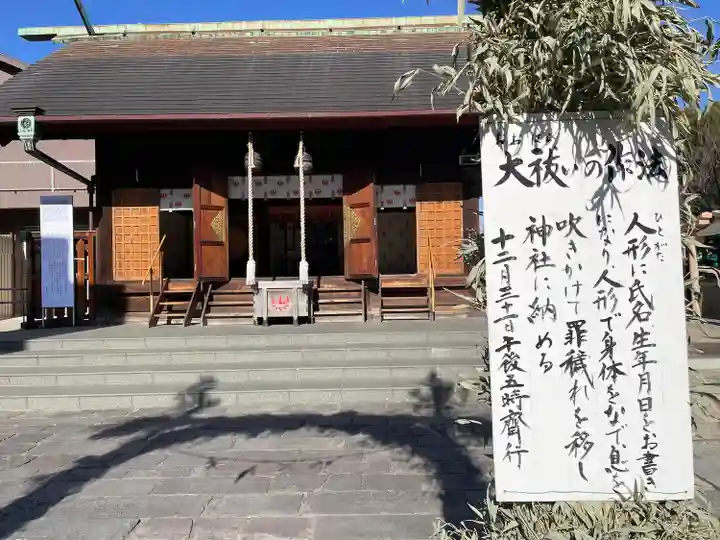 大祓いの作法
おお はら
人形に氏名生年月日をお書き
ひとがた
になり人形で身体をなで息を
吹きかけて罪穢れを移し
神社に納める
十二月三十一日午後五時齋行